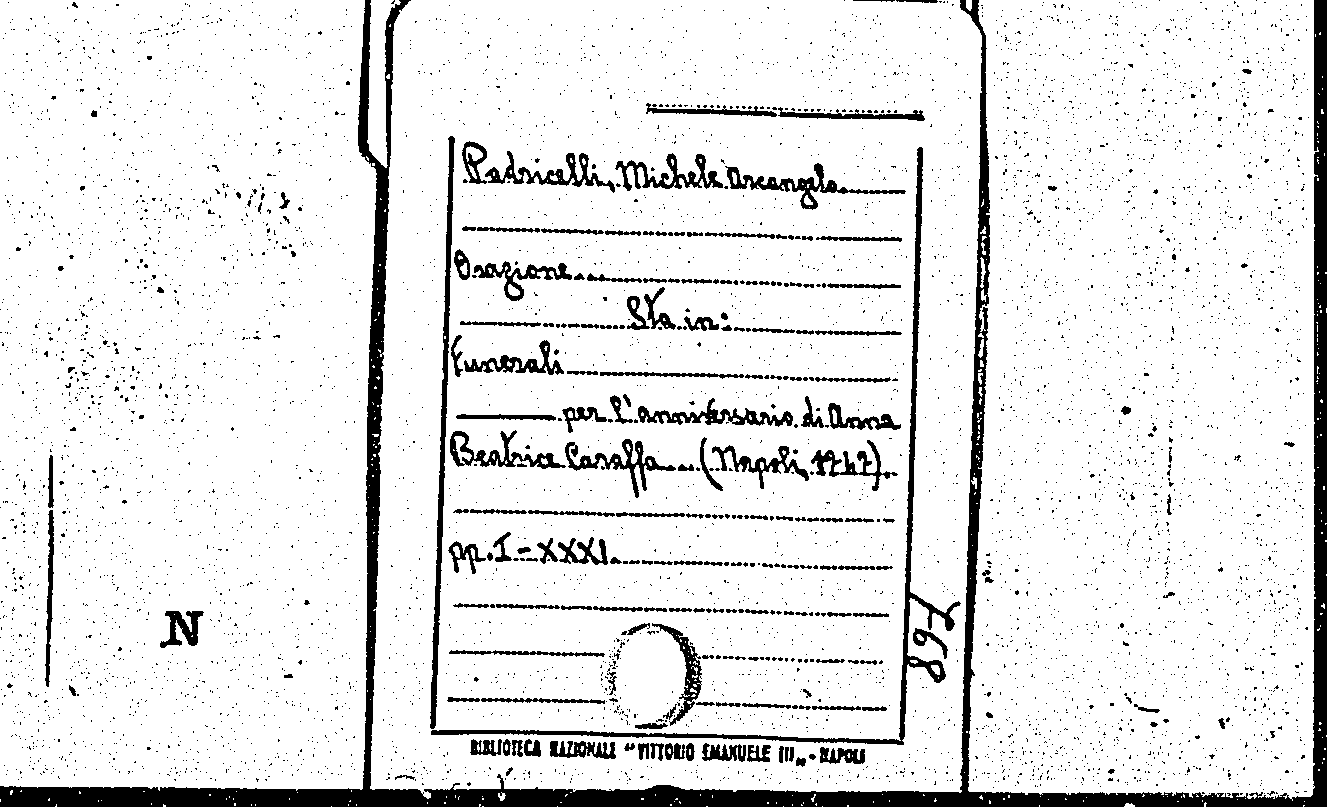 Padricelli, Michele Arcangelo.
Orazione...
Sta in:
Funerali
per l'anniversario di Anna
Beatrice Caraffa... (Napoli, 1747).
pp. I-XXXI.
768
N
BIBLIOTECA NAZIONALE "VITTORIO EMANUELE III„ - NAPOLI